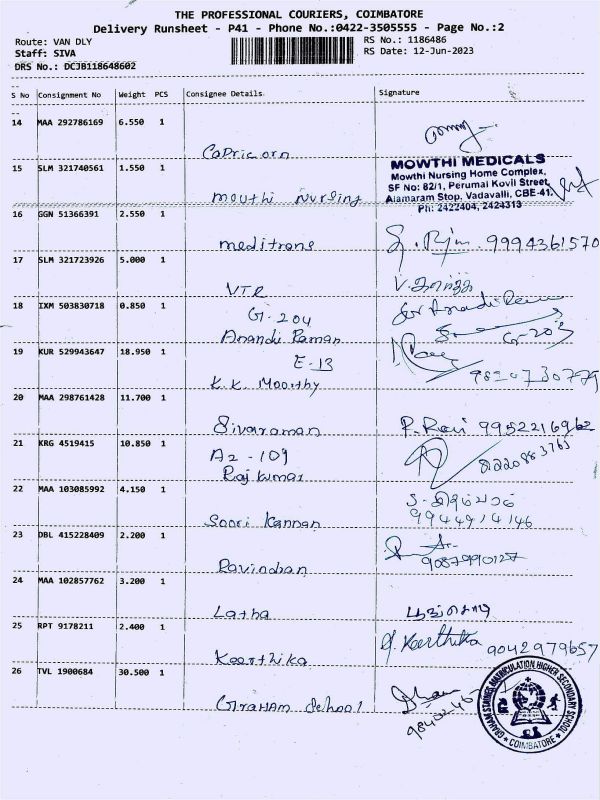 THE PROFESSIONAL COURIERS, COIMBATORE
Delivery Runsheet - P41 - Phone No.:0422-3505555 - Page No.:2
Route: VAN DLY
RS No.: 1186486
Staff: SIVA
RS Date: 12-Jun-2023
DRS No.: DCJB118648602
S No Consignment No Weight PCS Consignee Details Signature
14 MAA 292786169 6.550 1
Capricorn
MOWTHI MEDICALS
Mowthi Nursing Home Complex,
15 SLM 321740561 1.550 1
SF No: 82/1, Perumai Kovil Street,
Alamaram Stop, Vadavalli, CBE-41.
mouthi Nursing
Ph: 2422404, 2424313
16 GGN 51366391 2.550 1
meditrans
9994361570
17 SLM 321723926 5.000 1
VTR
18 IXM 503830718 0.850 1
G1-204
Anandi Raman
19 KUR 529943647 18.950 1
E-13
K.K. Moorthy
20 MAA 298761428 11.700 1
Sivaraman
P. Ravi
21 KRG 4519415 10.850 1
A2-109
Raj kumar
81220883763
22 MAA 103085992 4.150 1
Soori Kannan
9944914146
23 DBL 415228409 2.200 1
Ravindran
24 MAA 102857762 3.200 1
Latha
பூங்கொடி
25 RPT 9178211 2.400 1
Keerthika
Keerthika 9042979657
26 TVL 1900684 30.500 1
Graham School
COIMBATORE